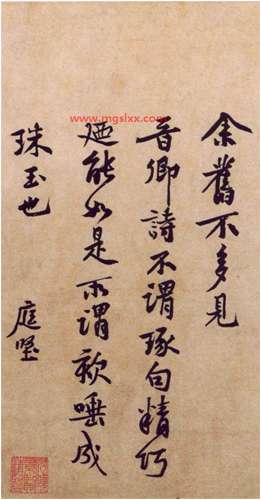 www.mgslxx.com
余舊不多見
晋卿詩不謂琢句精巧
廼能如是所謂欬唾成
珠玉也
庭堅